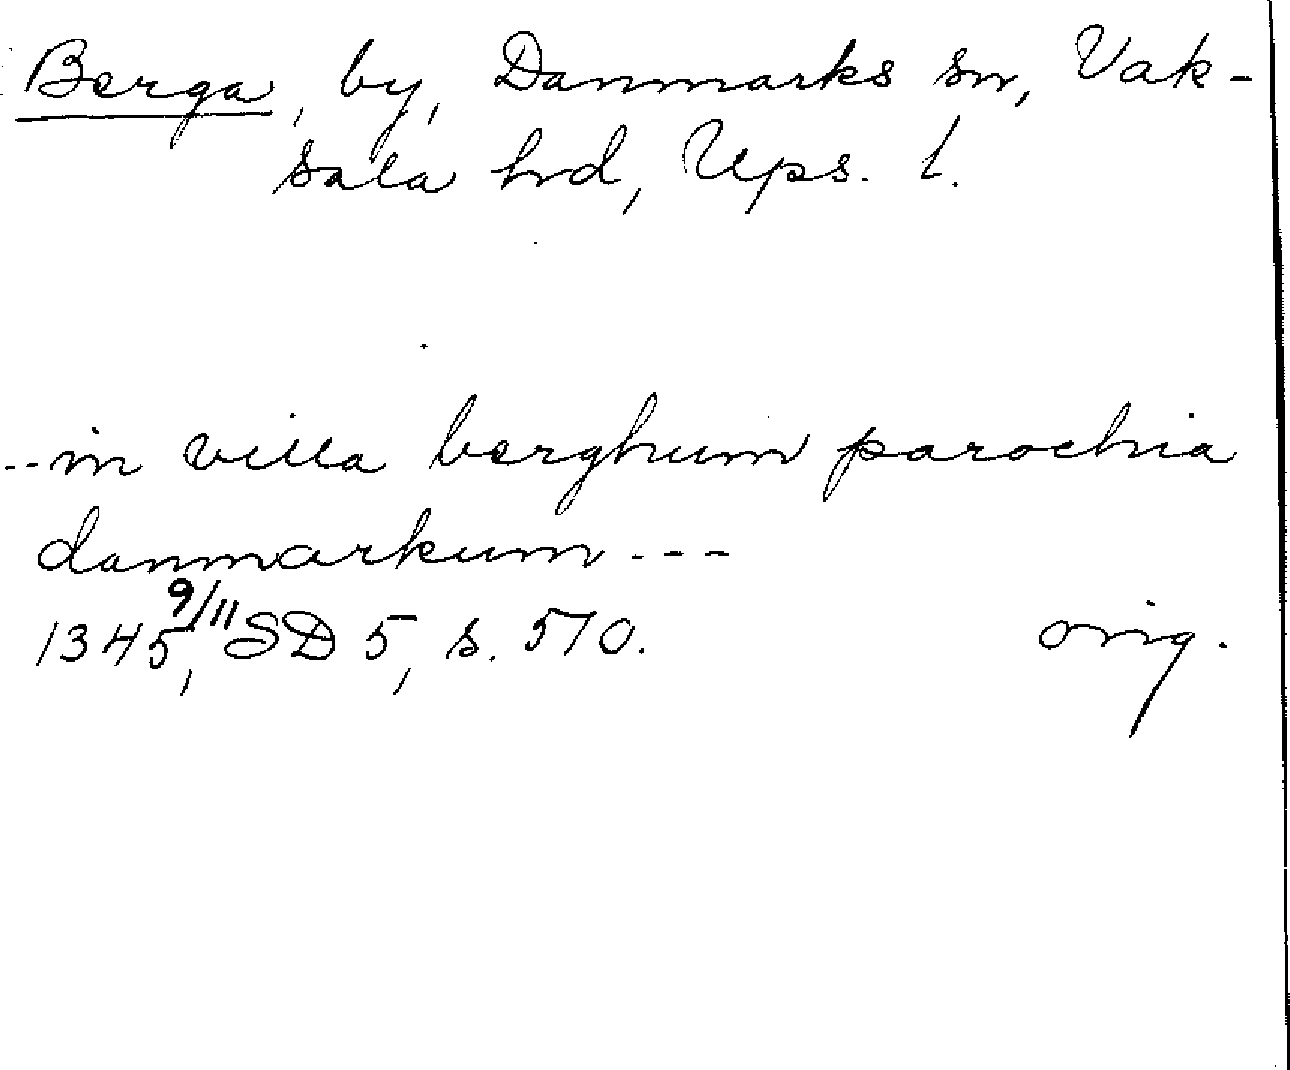 Berga, by, Danmarks sn, Vak-
sala hrd, Ups. l.
--in villa berghum parochia
danmarkum ---
1345 9/11, SD 5, s. 570. orig.